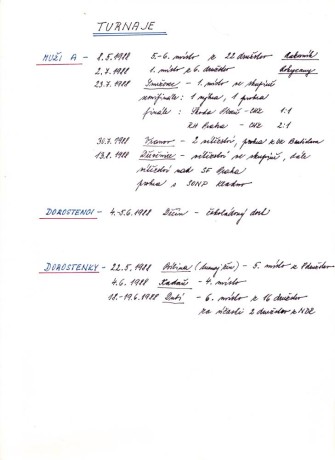 TURNAJE
MUŽI A - 8.5.1988 5.-6. místo z 22 družstev Rakovník
2.7.1988 1. místo z 6 družstev Rokycany
23.7.1988 - 1. místo ve skupině
semifinále: 1 výhra, 1 prohra
finále: Škoda Plzeň - CHZ 1:1
RH Praha - CHZ 2:1
30.7.1988 - 2 vítězství, prohra
13.8.1988 - vítězství ve skupině, dále
vítězství nad Praha
prohra s SONP Kladno
DOROSTENCI - 4.-5.6.1988 Děčín - čokoládový dort
DOROSTENKY - 22.5.1988 - 5. místo z družstev
4.6.1988 Kadaň - 4. místo
18.-19.6.1988 Dubí - 6. místo z 16 družstev
za účasti 2 družstev z NDR